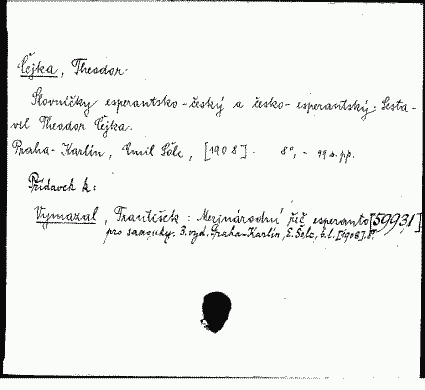 Čejka, Theodor
Slovníčky esperantsko-český a česko-esperantský. Sesta-
vil Theodor Čejka.
Praha-Karlín, Emil Šolc, [1908]. 8°, - 99 s. pp.
Přídavek k:
Vymazal, František: Mezinárodní řeč esperanto [59931]
pro samouky. 3. vyd. Praha-Karlín, E. Šolc, s.l. [1908]. 8°.